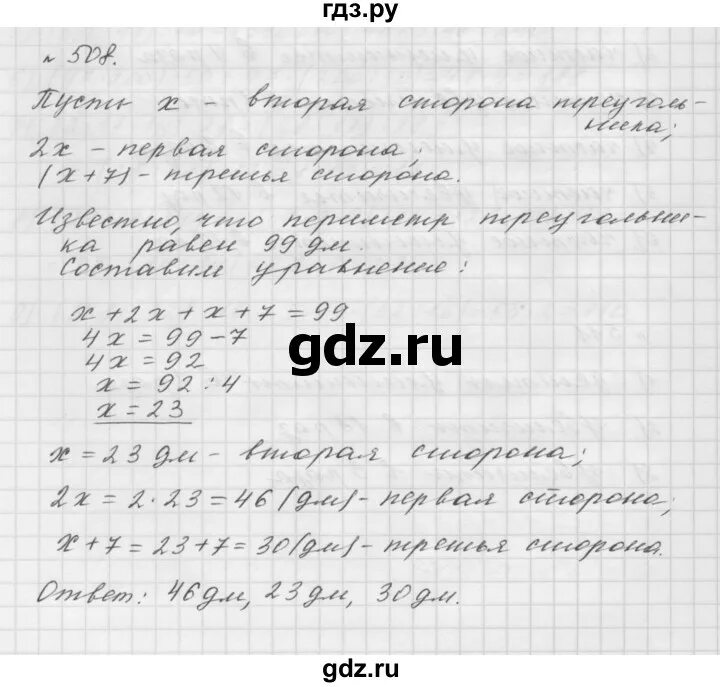 гдз.ру
№ 508.
Пусть x - вторая сторона треуголь-
ника;
2x - первая сторона;
(x+7) - третья сторона.
Известно, что периметр треугольни-
ка равен 99 дм.
Составим уравнение:
x + 2x + x + 7 = 99
4x = 99 - 7
4x = 92
x = 92 : 4
x = 23
gdz.ru
x = 23 дм - вторая сторона;
2x = 2 · 23 = 46 (дм) - первая сторона;
x + 7 = 23 + 7 = 30 (дм) - третья сторона.
Ответ: 46 дм, 23 дм, 30 дм.
gdz.ru